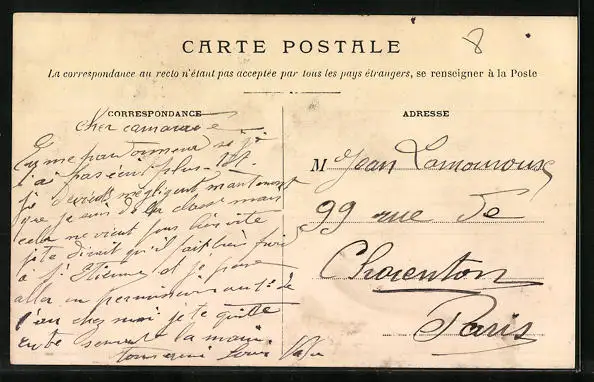 8
CARTE POSTALE
La correspondance au recto n'étant pas acceptée par tous les pays étrangers, se renseigner à la Poste
CORRESPONDANCE
Cher camarade
si je
t'ai pas écrit plus tôt.
je négligent maintenant
que je suis de la classe mais
cela ne vient pas bien vite
je te dirait qu'il fait bien froid
à St Etienne et je pense
aller en permission
l'an chez moi je te quitte
en te serrant la main
ton ami Louis
ADRESSE
M Jean Lamouroux
99 rue de
Charenton
Paris